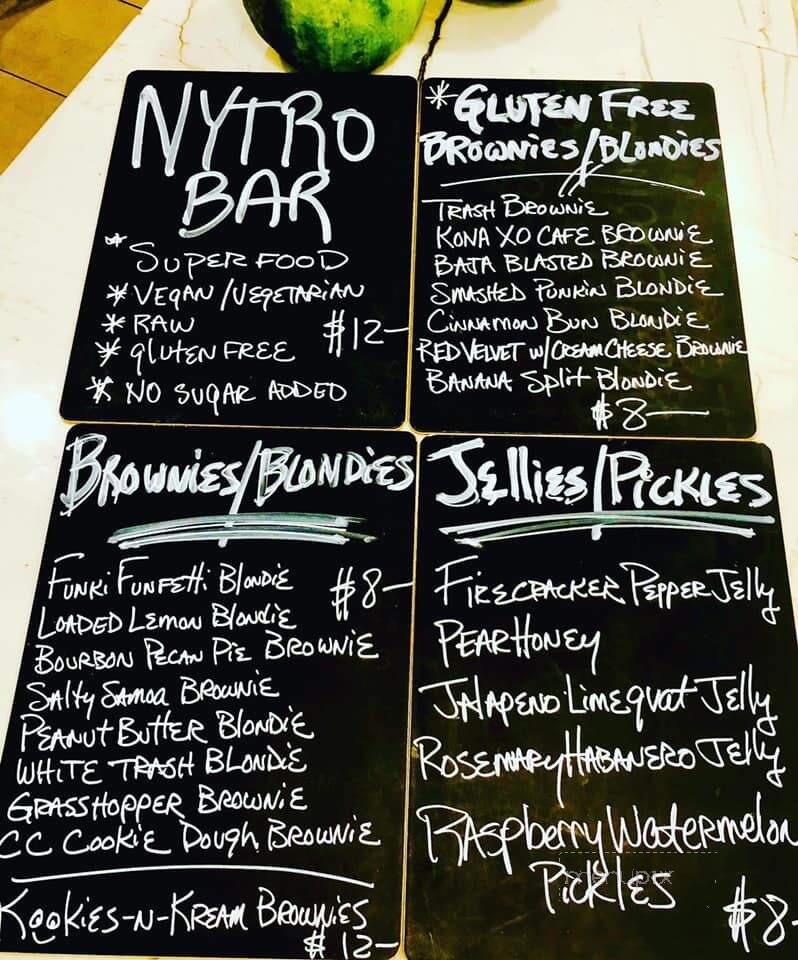 NYTRO
BAR
* SUPER FOOD
* VEGAN/VEGETARIAN
* RAW
* gluten FREE
$12—
* NO SUGAR ADDED
*GLUTEN FREE
BROWNIES/BLONDIES
TRASH BROWNIE
KONA XO CAFE BROWNIE
BAJA BLASTED BROWNIE
SMASHED PUNKIN BLONDIE
CINNAMON BUN BLONDIE
RED VELVET w/CREAM CHEESE BROWNIE
BANANA Split BLONDIE
$8—
BROWNIES/BLONDIES
FUNKi FUNFETTi BlONDIE
$8—
LOADED LEMON BlONDIE
BOURBON PECAN PIE BROWNIE
SAlTy SAMOA BROWNIE
PEANUT BUTTER BLONDIE
WHITE TRASH BLONDIE
GRASSHOPPER BROWNIE
CC COOKIE DOUGH BROWNIE
KOOKIES-N-KREAM BROWNIES
$12—
JEllIES/PICKLES
FIRECRACKER PEPPER JElly
PEAR HONEY
JALAPENO Limequat JElly
ROSEMARY HABANERO JElly
RASPBERRY WATERMELON
PICKLES
menupix
$8-